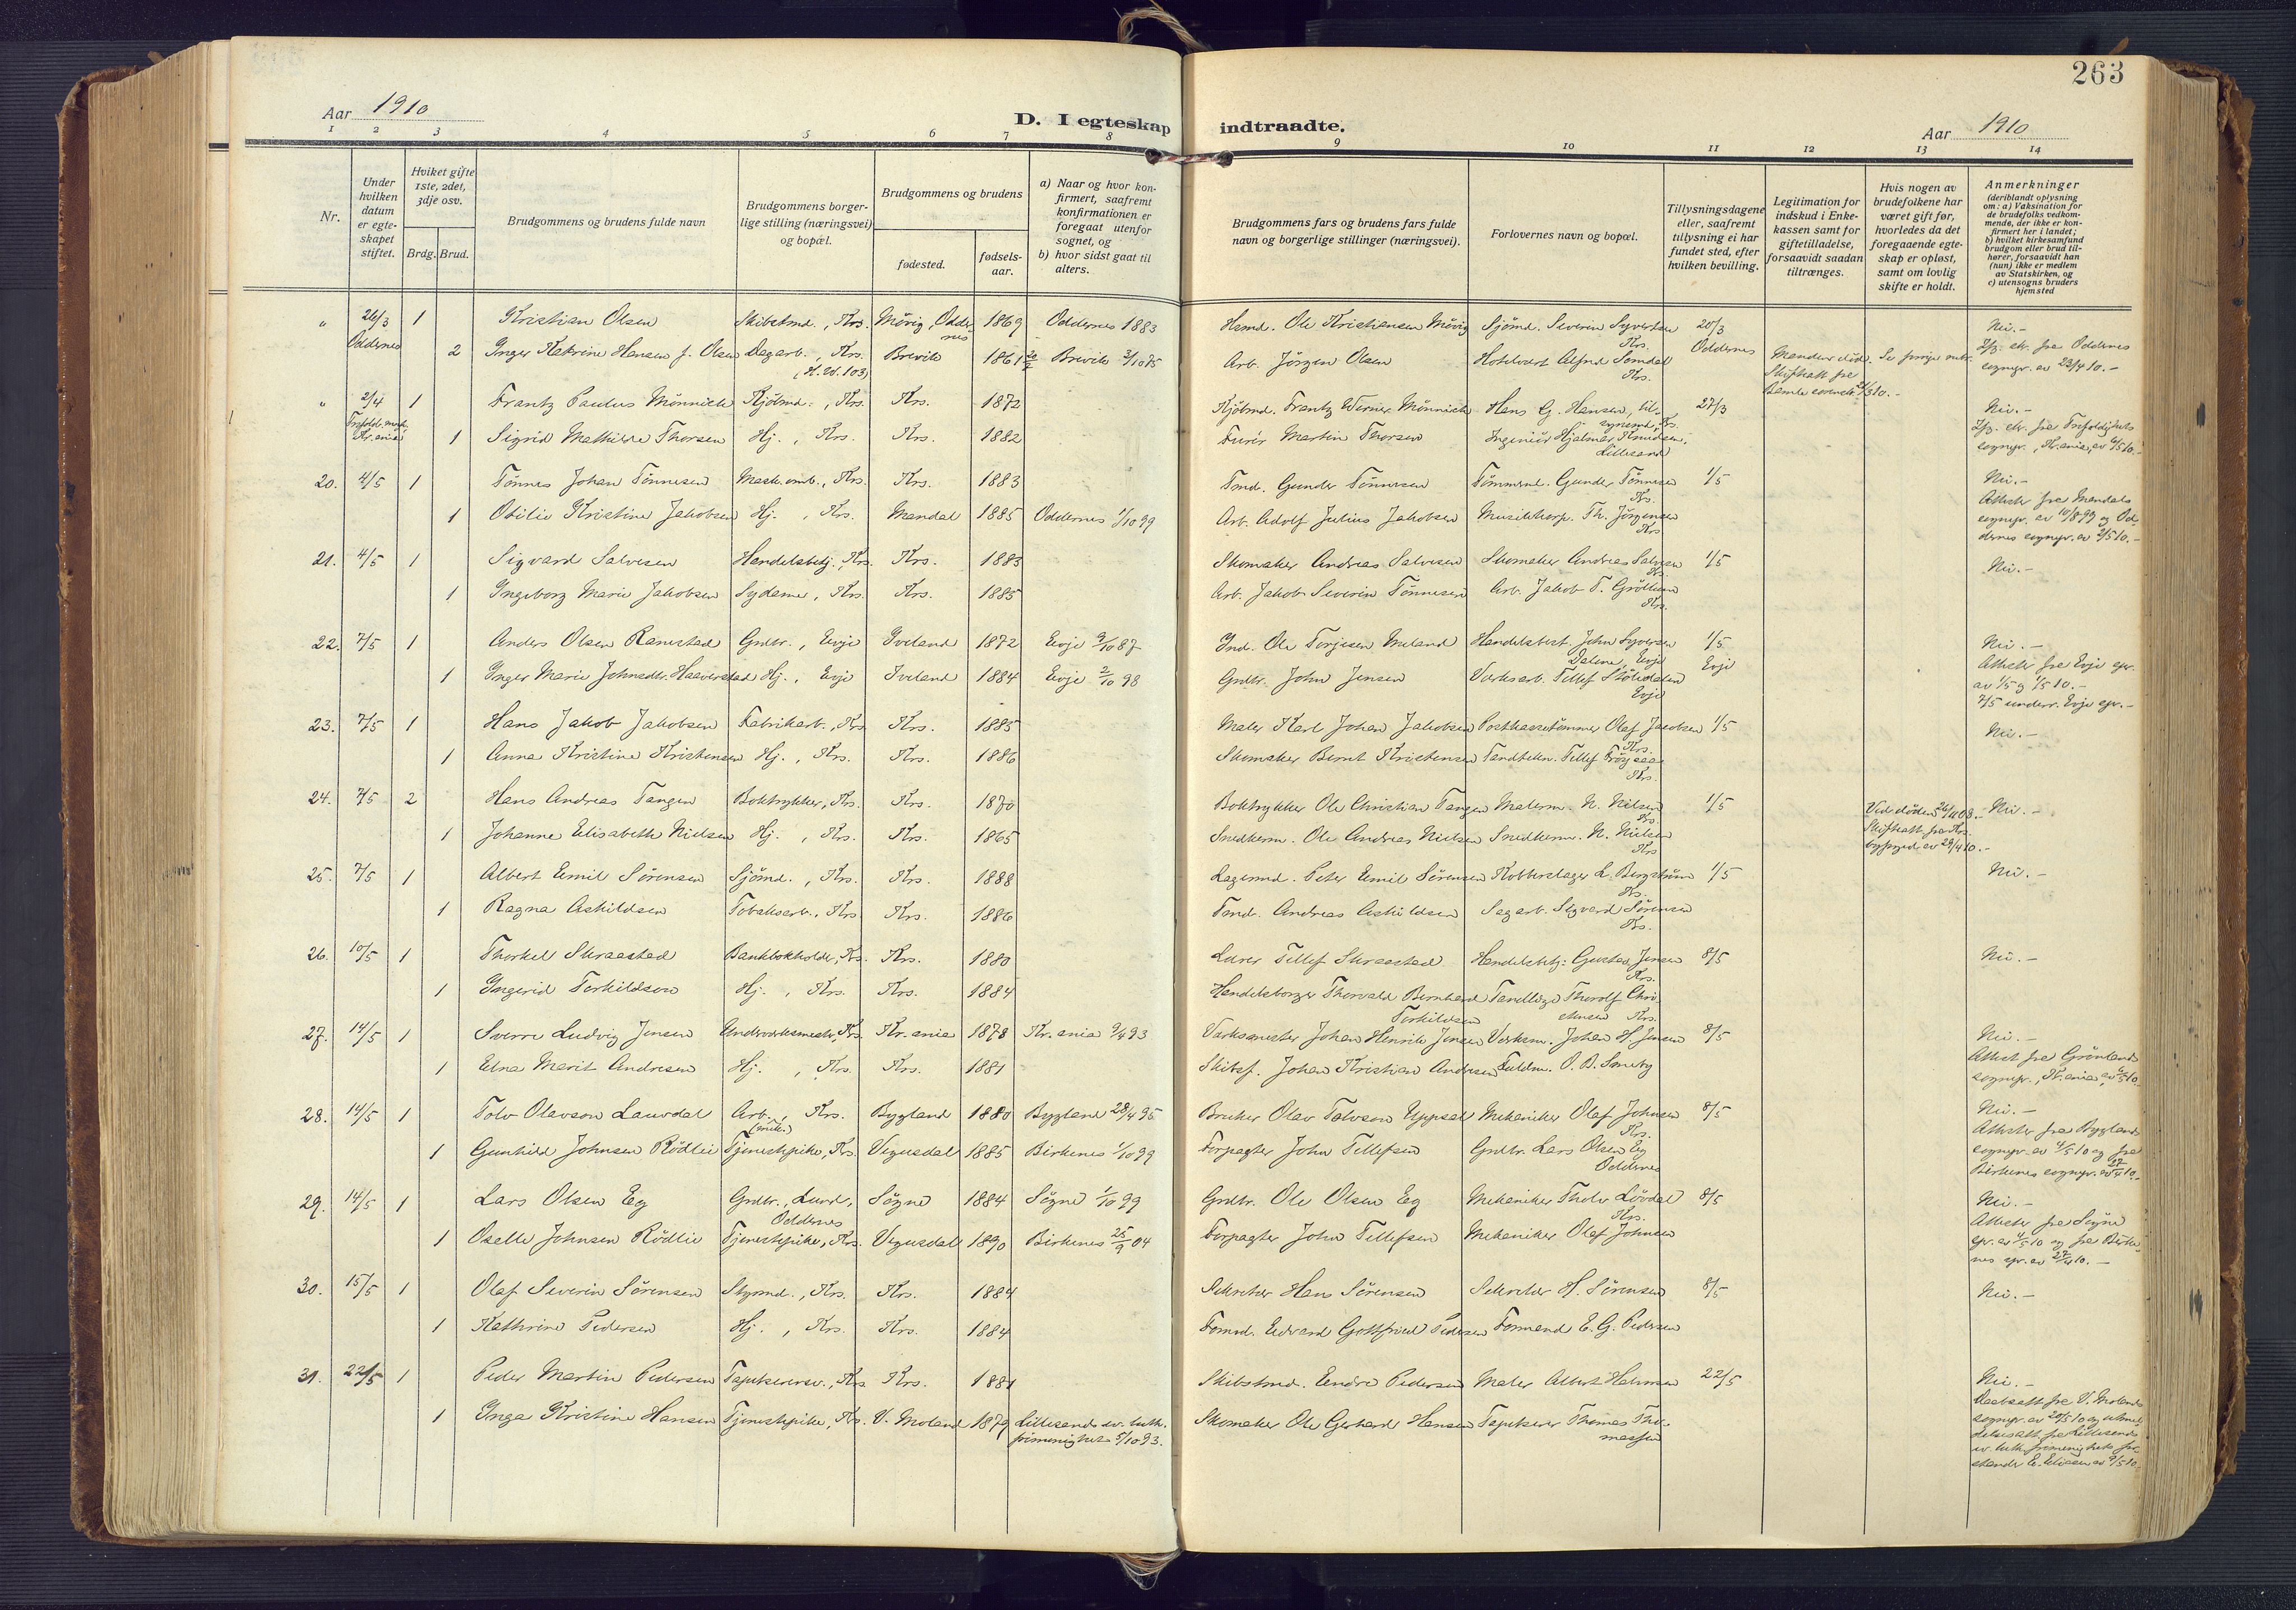 263
Aar 1910
D. I egteskap indtraadte.
Aar 1910
1 2 3 4 5 6 7 8 9 10 11 12 13 14
Nr.
Under hvilken datum er egteskapet stiftet.
Hviket gifte 1ste, 2det, 3dje osv.
Brdg. Brud.
Brudgommens og brudens fulde navn
Brudgommens borgerlige stilling (næringsvei) og bopæl.
Brudgommens og brudens
fødested.
fødselsaar.
a) Naar og hvor konfirmert, saafremt konfirmationen er foregaat utenfor sognet, og
b) hvor sidst gaat til alters.
Brudgommens fars og brudens fars fulde navn og borgerlige stillinger (næringsvei).
Forlovernes navn og bopæl.
Tillysningsdagene eller, saafremt tillysning ei har fundet sted, efter hvilken bevilling.
Legitimation for indskud i Enkekassen samt for giftetilladelse, forsaavidt saadan tiltrænges.
Hvis nogen av brudefolkene har været gift før, hvorledes da det foregaaende egteskap er opløst, samt om lovlig skifte er holdt.
Anmerkninger (deriblandt oplysning om: a) Vaksination for de brudefolks vedkommende, der ikke er konfirmert her i landet; b) hvilket kirkesamfund brudgom eller brud tilhører, forsaavidt han (hun) ikke er medlem av Statskirken, og c) utensogns bruders hjemsted
" 26/3 1 Kristian Olsen Skibstmd., Krs. Møvig, Oddernes 1869 Oddernes 1883 Ole Kristiansen Møvig Sjömd. Severin Syvertsen Krs. 20/3 Nei.-
Oddernes 2 Inger Katrine Hansen f. Olsen Dagarb., Krs. Brevik 1861 Brevik Arb. Jørgen Olsen Hotelvert Alfred Krs. Oddernes
" 2/4 1 Frantz Paulus Mønnich Kjølmd., Krs. Krs. 1872 Kjølmd. Frantz Werner Mønnich Hans G. Hansen, 27/3 Nei.-
1 Sigrid Mathilde Thorsen Hj., Krs. Krs. 1882 Furér Martin Thorsen Ingeniör Hjalmar Knudsen, Lillesand
20. 4/5 1 Tönnes Johan Tönnesen Mask.omb., Krs. Krs. 1883 Tmd. Gunder Tönnesen Tömmerm. Gunder Tönnesen Krs. 1/5 Nei.-
1 Otilie Kristine Jakobsen Hj., Krs. Mandal 1885 Oddernes 1/10 99 Arb. Adolf Julius Jakobsen Musikkorp. Th. Jørgensen Krs. Attester fra Mandals sognepr. av 10/8 99 og Oddernes sognepr. av 2/5 10.-
21. 4/5 1 Sigvard Salvesen Handelsbetj., Krs. Krs. 1883 Skomaker Andreas Salvesen Skomaker Andreas Salvesen Krs. 1/5 Nei.-
1 Ingeborg Marie Jakobsen Sydame, Krs. Krs. 1885 Arb. Jakob Severin Tönnesen Arb. Jakob T. Krs.
22. 7/5 1 Anders Olsen Ramstad Grdbr., Evje Iveland 1872 Evje 9/10 87 Ind. Ole Torjesen Meland Handelsbest. John Syversen Dalene, Evje 1/5 Nei.-
1 Inger Marie Johnsdtr. Haaverstad Hj., Evje Iveland 1884 Evje 2/10 98 Grdbr. John Jensen Værksarb. Tellef Evje Evje Attester fra Evje spr. av 1/5 og 1/5 10.- 7/5 underr. Evje spr.-
23. 7/5 1 Hans Jakob Jakobsen Fabrikarb., Krs. Krs. 1885 Maler Karl Johan Jakobsen Postkassetömmer Olaf Jacobsen Krs. 1/5 Nei.-
1 Anna Kristine Kristensen Hj., Krs. Krs. 1886 Skomaker Bernt Kristensen Tandtekn. Tellef Frøysaa Krs.
24. 7/5 2 Hans Andreas Tangen Boktrykker, Krs. Krs. 1870 Boktrykker Ole Christian Tangen Malerm. N. Nilsen Krs. 1/5 Ved döden 26/4 08.- Skifteatt. fra Krs. byfoged av 28/4 10.- Nei.-
1 Johanne Elisabeth Nielsen Hj., Krs. Krs. 1865 Snedkerm. Ole Andreas Nielsen Snedkerm. N. Nielsen Krs.
25. 7/5 1 Albert Emil Sörensen Sjömd., Krs. Krs. 1888 Lagermd. Peter Emil Sörensen Kobberslager L. Bergstrøm Krs. 1/5 Nei.-
1 Ragna Askildsen Tobaksarb., Krs. Krs. 1886 Tmd. Andreas Askildsen Sagarb. Sigvard Sørensen Krs.
26. 10/5 1 Thorkel Skraastad Bankbokholder, Krs. Krs. 1880 Lærer Tellef Skraastad Handelsbetj. Gustav Jensen Krs. 8/5 Nei.-
1 Ingerid Terkildsen Hj., Krs. Krs. 1884 Handelsborger Thorvald Bernhard Terkildsen Tandlæge Thorolf Christensen Krs.
27. 14/5 1 Sverre Ludvig Jensen Underværksmester, Krs. Kr.ania 1878 Kr.ania 9/4 93 Værksmester Johan Henrik Jensen Værksm. Johan H. Jensen 8/5 Nei.-
1 Edna Marit Andresen Hj., Krs. Krs. 1881 Skibsf. Johan Kristian Andresen Fuldm. O. B. Smeby Attest fra Grönlands sognepr., Kr.ania, av
28. 14/5 1 Tolv Olavson Lauvdal Arb., Krs. Bygland 1880 Bygland 28/4 95 Bruker Olav Tolvson Uppsal Mekaniker Olaf Johnsen Krs. 8/5 Nei.-
1 Gunhild Johnsen Rödlie Tjenestepike, Krs. Vegusdal 1885 Birkenes 1/10 99 Forpagter John Tellefsen Grdbr. Lars Olsen Eg Oddernes Attester fra Byglands sognepr. av 4/5 10 og fra Birkenes sognepr. av 27/4 10.-
29. 14/5 1 Lars Olsen Eg Grdbr., Lund, Oddernes Søgne 1884 Søgne 1/10 99 Grdbr. Ole Olsen Eg Mekaniker Tholv Lövdal Krs. 8/5 Nei.-
1 Oselle Johnsen Rödlie Tjenestepike, Krs. Vegusdal 1890 Birkenes 25/9 04 Forpagter John Tellefsen Mekaniker Olaf Johnsen Attester fra Søgne spr. av 4/5 10 og fra Birkenes spr. av 27/4 10.-
30. 15/5 1 Olaf Severin Sörensen Styrmd., Krs. Krs. 1884 Sekretær Hans Sörensen Sekretær H. Sörensen 8/5 Nei.-
1 Kathrine Pedersen Hj., Krs. Krs. 1884 Formd. Edvard Gottfried Pedersen Formand E. G. Pedersen
31. 22/5 1 Peder Martin Pedersen Tapetserersv., Krs. Krs. 1881 Skibstmd. Endre Pedersen Maler Albert Halvorsen 22/5 Nei.-
1 Inga Kristine Hansen Tjenestepike, Krs. V. Moland 1879 Lillesands ev. luth. frimenighet 5/10 93. Skomaker Ole Gerhard Hansen Tapetserer Thomas Thomassen Daabsatt. fra V. Molands sognepr. av 20/5 10 og utmeldelsesatt. fra Lillesands ev. luth. frimenighets forstander E. Eliassen av 9/5 10.-